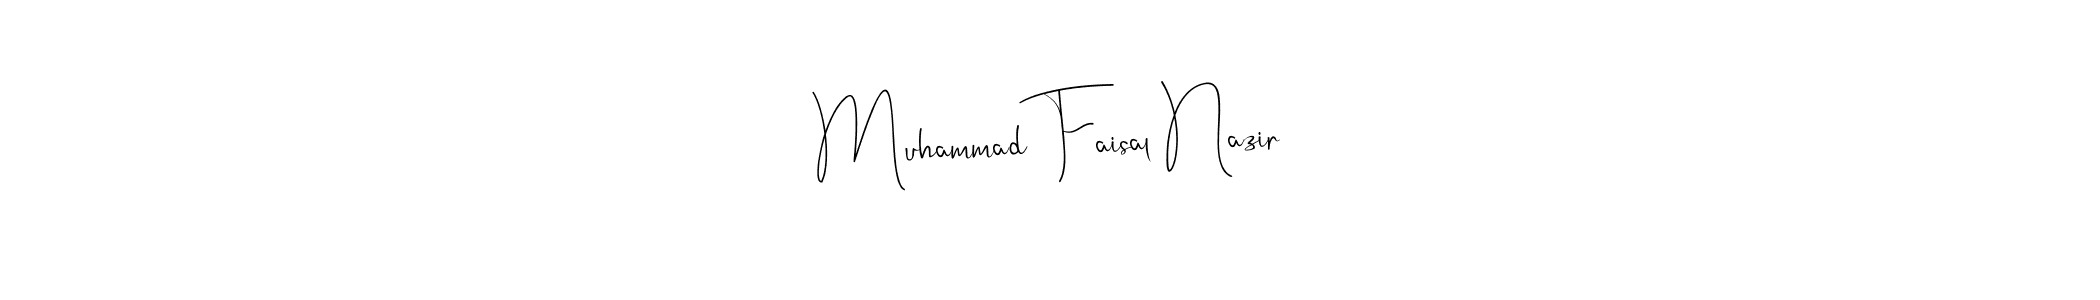 Muhammad Faisal Nazir